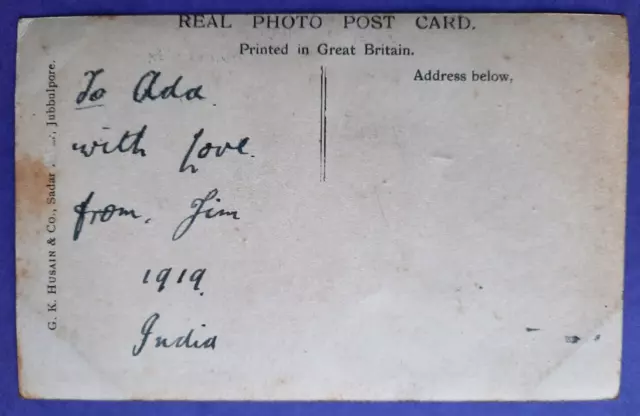 REAL PHOTO POST CARD.
Printed in Great Britain.
Address below.
To Ada.
with love.
from. Jim
1919.
India
G. K. HUSAIN & CO., Sadar Jubbulpore.